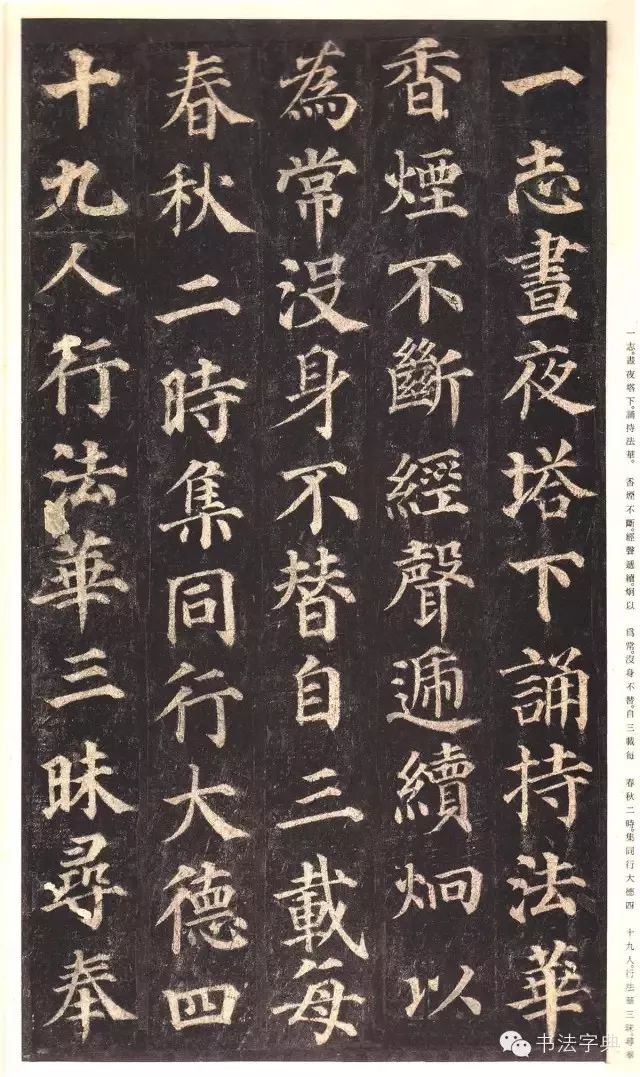 一志晝夜塔下誦持法華
香煙不斷經聲遞續炯以
為常沒身不替自三載每
春秋二時集同行大德四
十九人行法華三昧尋奉
一志。晝夜塔下。誦持法華。 香煙不斷。經聲遞續。炯以 爲常。沒身不替。自三載每 春秋二時。集同行大德四 十九人。行法華三昧。尋奉
书法字典